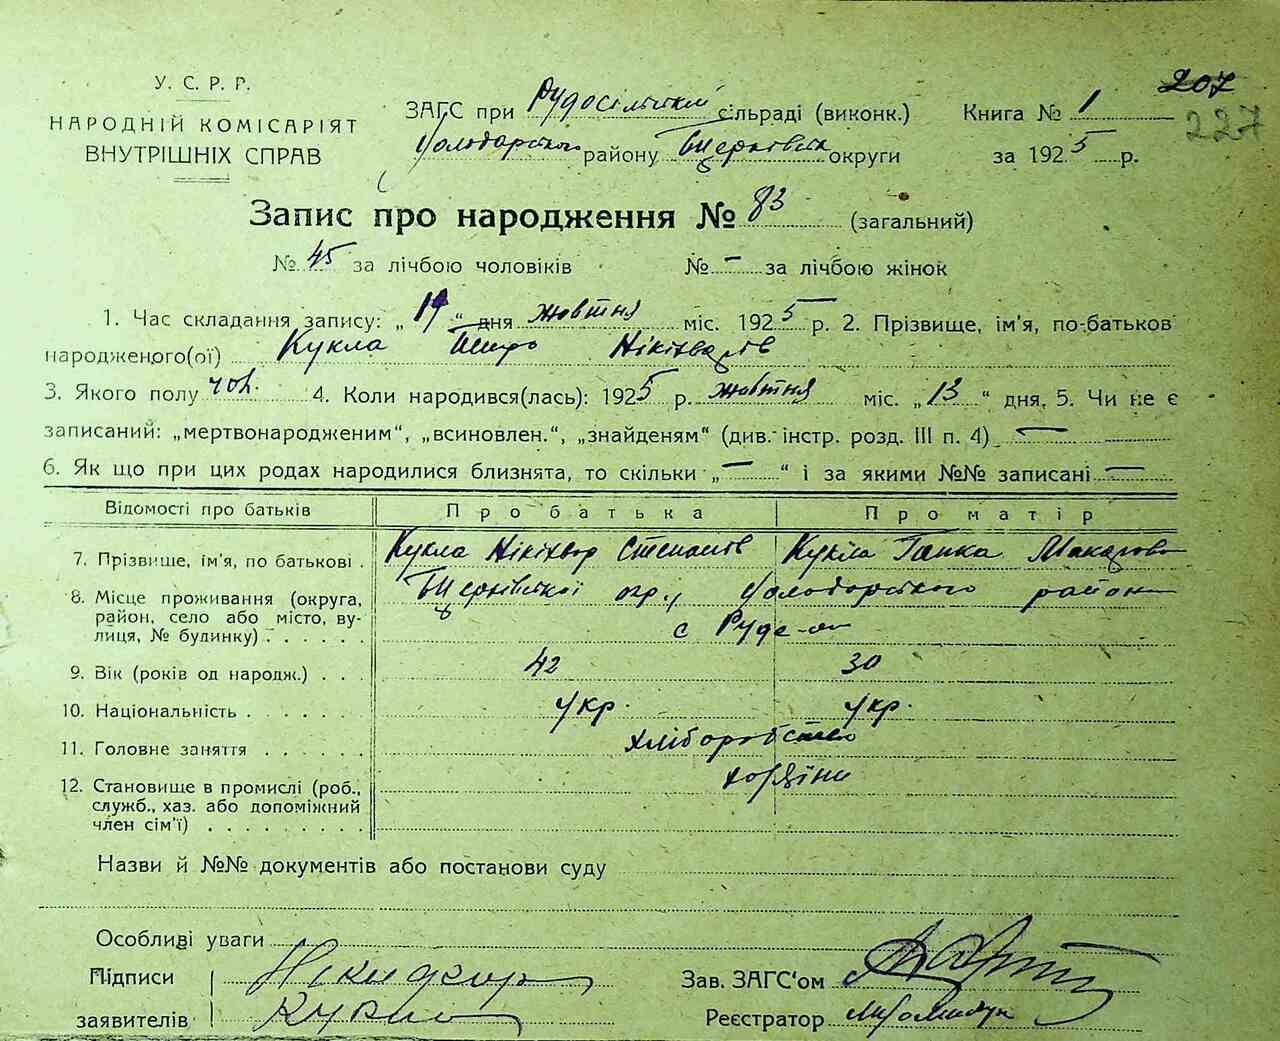 207
227
У. С. Р. Р.
НАРОДНІЙ КОМІСАРІЯТ
ВНУТРІШНІХ СПРАВ
ЗАГС при Рудосільській сільраді (виконк.) Книга № 1
Володарського району Б.Церківськ округи за 1925 р.
Запис про народження № 83 (загальний)
№ 45 за лічбою чоловіків № — за лічбою жінок
1. Час складання запису: „19“ дня жовтня міс. 1925 р. 2. Прізвище, ім'я, по-батьков
народженого(ої) Кукла Нікіхварів
3. Якого полу чол. 4. Коли народився(лась): 1925 р. жовтня міс. „13“ дня. 5. Чи не є
записаний: „мертвонародженим“, „всиновлен.“, „знайденям“ (див. інстр. розд. III п. 4) —
6. Як що при цих родах народилися близнята, то скільки „—“ і за якими №№ записані —
Відомості про батьків Про батька Про матір
7. Прізвище, ім'я, по батькові . Кукла Нікіхвор Степанів Кукла Ганка Макарова
8. Місце проживання (округа, Б Церківської окр., Володарського району
район, село або місто, ву-
лиця, № будинку) . . . . . . с Руде-
9. Вік (років од народж.) . . . 42 30
10. Національність . . . . . . . укр. укр.
11. Головне заняття . . . . . . хліборобство
12. Становище в промислі (роб., хозяїни
служб., хаз. або допоміжний
член сім'ї) . . . . . . . . .
Назви й №№ документів або постанови суду
Особливі уваги
Підписи Никифор Зав. ЗАГС'ом
заявителів Кукла Реєстратор